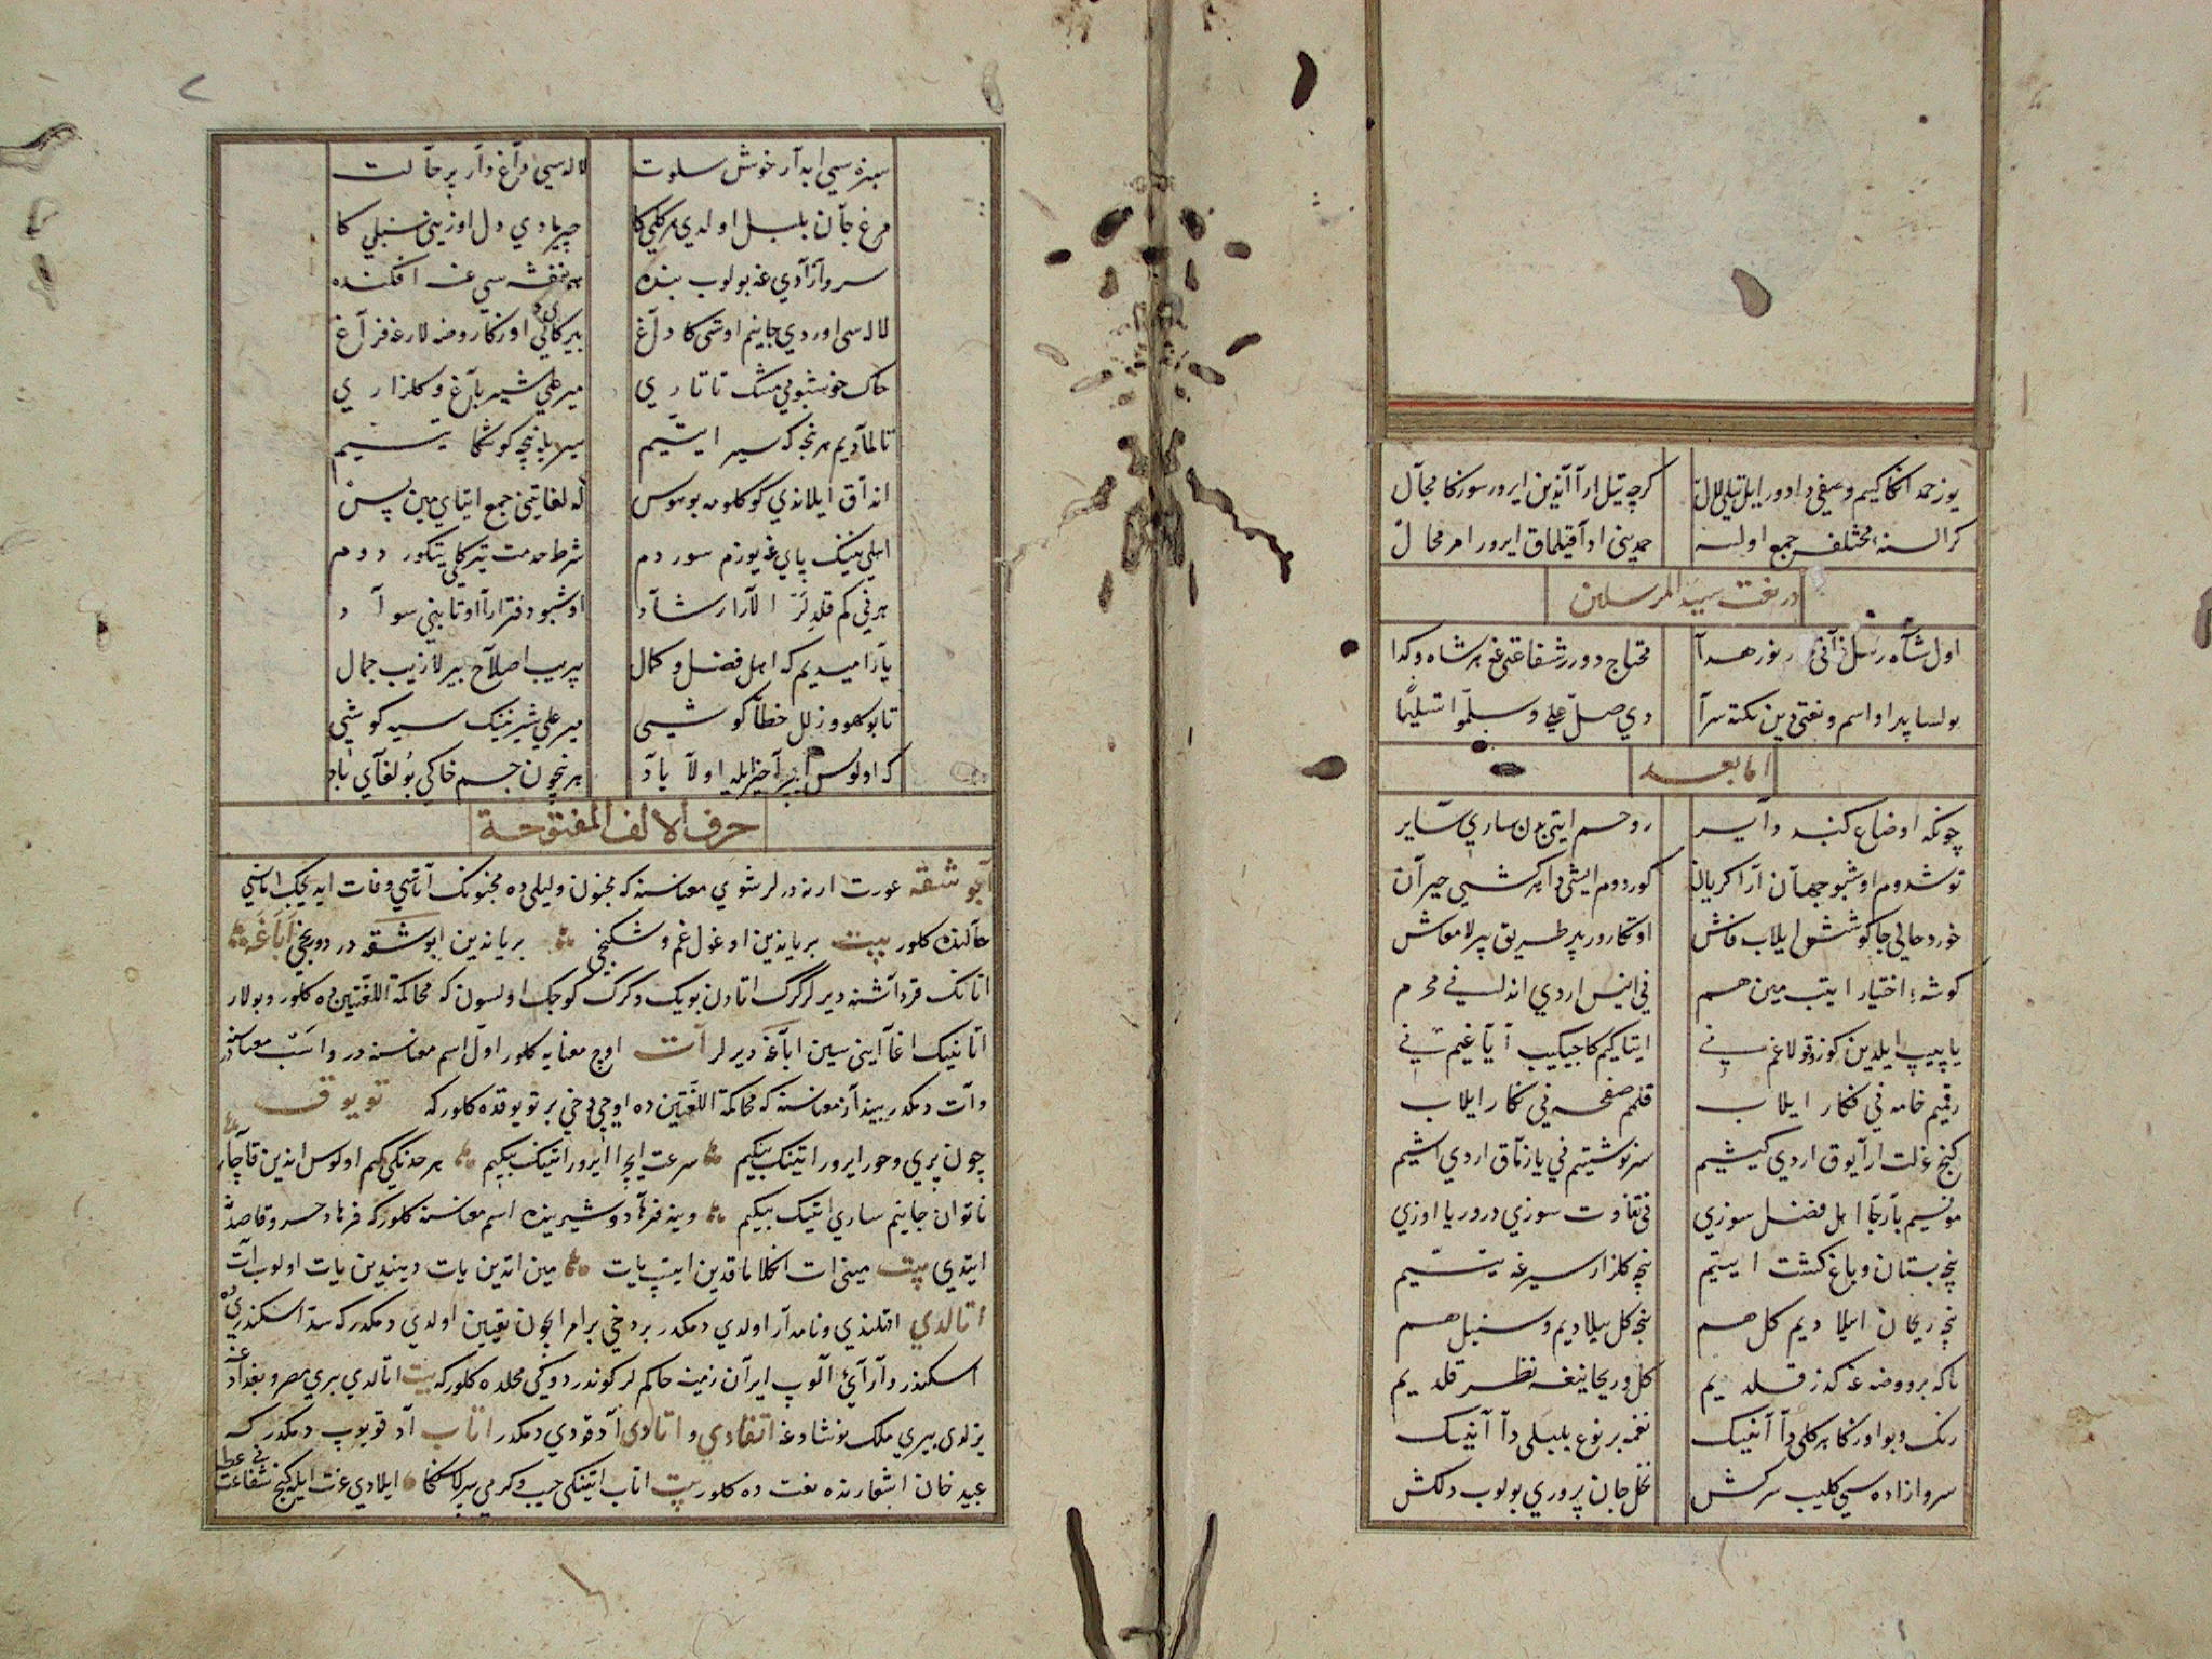 یوز حمد انکا کیم وصفی دا دور ایل تیلی لال
کرچه تیل ارا آندین ایرور سوزکا مجال
کر السنهٔ مختلف جمع اولسه
حمدینی ادا قیلماق ایرور امر محال
در نعت سید المرسلین
اول شاه رسل نور هدا
محتاج دورر شفاعتی غه هر شاه و کدا
بولسا پیدا و اسم و نعتی دین نکته سرا
دی صل علی وسلموا تسلیما
اما بعد
چونکه اوضاع کنبد دآیر
روحسم ایتی بدن ساری سایر
توشدوم اوشبو جهان آرا کریان
کوردوم ایشی دا هر کشی حیران
خورد حالی جا کوشش ایلاب فاش
اوتکارور بر طریق بیرلا معاش
کوشهٔ اختیار ایتیب مین هم
نی انیس اردی اندا نی محرم
یاپیپ ایلدین کوز و قولاغم نی
ایتاکیم کا چیکیب آیاغیم نی
رقمیم خامه نی نکار ایلاب
قلمم صفحه نی نکار ایلاب
کنج عزلت ارا یوق اردی کیشیم
سرنوشتیم نی یازماق اردی ایشیم
مونسیم بار جا اهل فضل سوزی
نی تفاوت سوزی درور یا اوزی
نیچه بستان و باغ کشت ایتیم
نیچه کلزار سیرغه یتیم
نیچه ریحان ایلادیم کل هم
نیچه کل ییلادیم و سنبل هم
تاکه بر روضه غه کذر قلدیم
کل و ریحانیغه نظر قلدیم
رنک و بو اوزکا هر کلی دا آنینک
نغمه بر نوع بلبلی دا آنینک
سرو ازاده سی کلیب سرکش
نخل جان پروری بولوب دلکش
٢
سبزه سی ایدار خوش سلوت
لاله سی داغ دار پر حالت
مرغ جان بلبل اولدی هر کلی کا
چیرمادی دل اوزینی سنبلی کا
سرو آزادی غه بولوب بنده
بنفشه سی غه افکنده
لاله سی اوردی جانیم اوستی کا داغ
بیرکالی اوزکا روضه لارغه فراغ
خاک خوشبویی مشک تاتاری
میر علی شیر باغ و کلزاری
تالمادیم هر نچه که سیر ایتیم
سیر یانیچه کوشکا یتیم
انداق ایلاندی کوکلومه بو هوس
که لغاتینی جمع ایتای مین بس
ایلی نینک پای غه یوزم سوردم
شرط خدمت یتیرکالی یتکوردوم
هر نی کم قلدلر الار ارشاد
اوشبو دفتر ارا اوتا بینی سواد
بار امیدیم که اهل فضل و کمال
بیریب اصلاح بیرلا زیب جمال
تا بو سهو و زلل خطا کوشی
میر علی شیرنینک سیه کوشی
که اولوس بیر آخر ایله اولا یاد
هر نچون جسم خاکی بولغای باد
حرف الالف المفتوحة
آبوشقه عورت ارنه درلر شوی معناسنه که مجنون و لیلی ده مجنونک آتاسی وفات ایدیجک اناسی
حالنده کلور بیت بر یاندین اوغول غم و شکنجی بر یاندین ابوشقه درد و رنجی اباغه
اتانک قرداشنه دیرلر کرک اتادن بویک و کرک کوجک اولسون که محاکمة اللغتین ده کلور و بولار
اتانینک اغا اینی سین اباغه دیرلر آت اوج معنایه کلور اول اسم معناسنه در و اسب معناسنه در
وآت دمکدر بیند آز معناسنه که محاکمة اللغتین ده اوچی دخی بر تویوقده کلور که تویوق
چون پری و حور ایرور اتینک بیکیم سرعت ایچرا ایرور اتینک بیکیم هر خدنکی کیم اولوس اندین قاچار
ناتوان جانیم ساری اتینک بیکیم وینه فرهاد و شیرینده اسم معناسنه کلور که فرهاد خسرو قاصد
ایتدی بیت مینی ات انکلاماقدین ایتیب یات مین اتدین یات و بیندین یات اولوب آت
اتالدی اتلندی و نامدار اولدی دمکدر بر دخی بر امر ایچون تعیین اولدی دمکدر که سد اسکندری ده
اسکندر دارائی الوب ایران زمینه حاکملر کوندردوکی محلده کلور که بیت اتالدی بیری مصر و بغداد غه
یزلدی بیری ملک نوشاد غه اتغادی و اتادی آد قودی دمکدر اتاب آد قویوب دمکدر که
عبید خان اشعارنده نعت ده کلور بیت اتاب ایتنکی حبیب و کرمی بیرلا سنکا ایلادی عزت ایله کنج شفاعت نی عطا